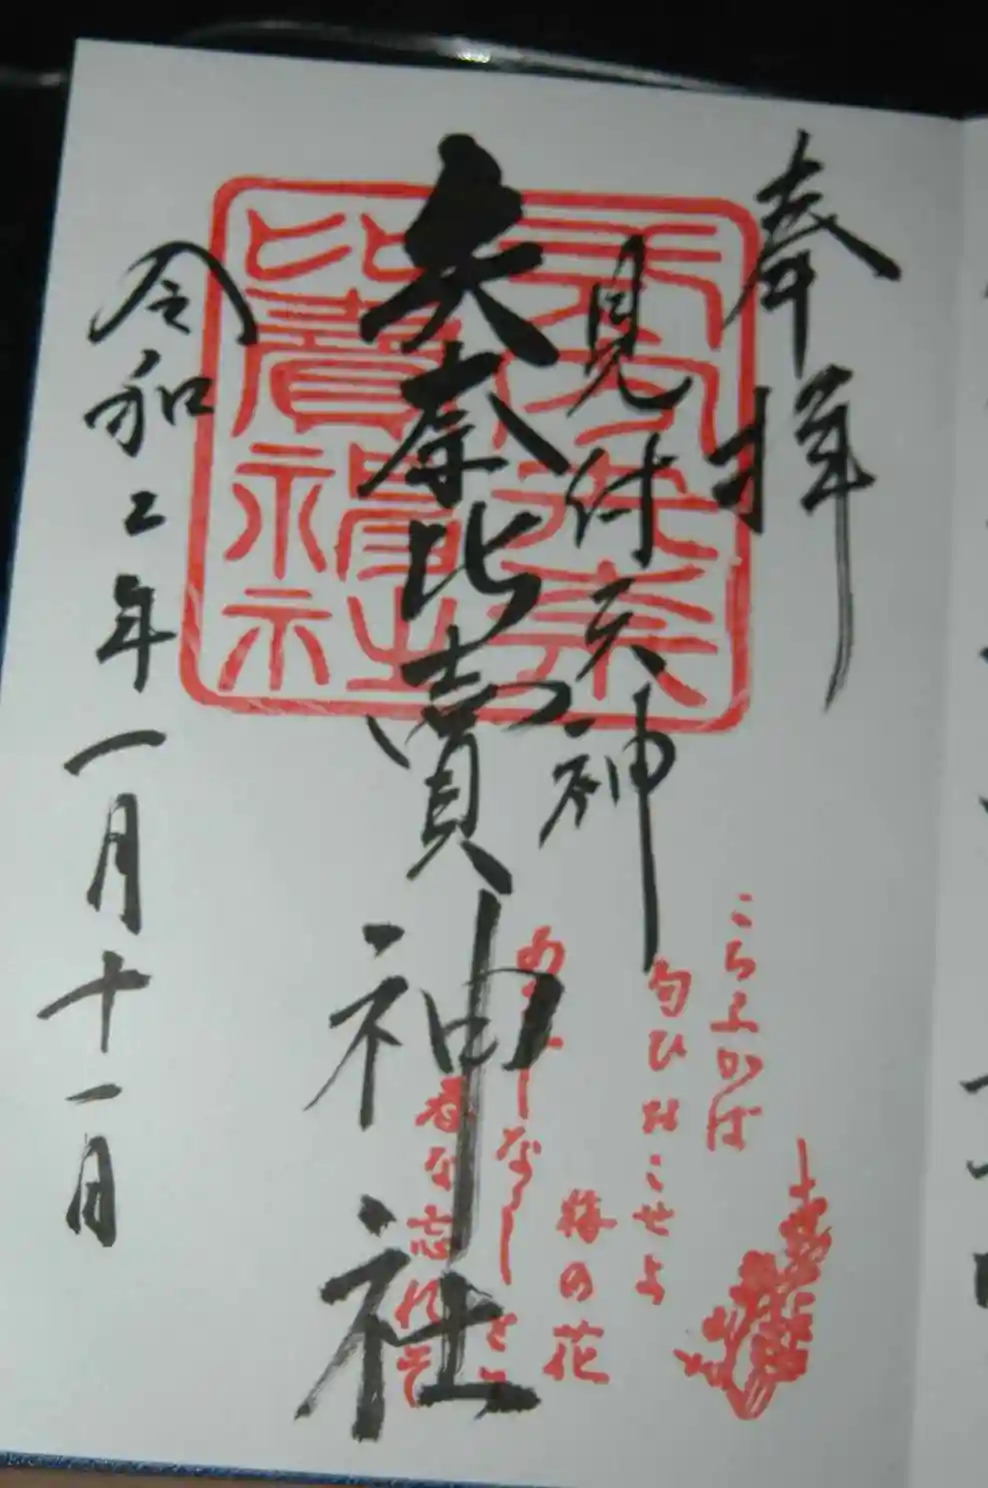 奉拝
見付天神
矢奈比賣神社
令和二年一月十一日
こちふかば
匂ひおこせよ
梅の花
あるじなしとて
春な忘れそ